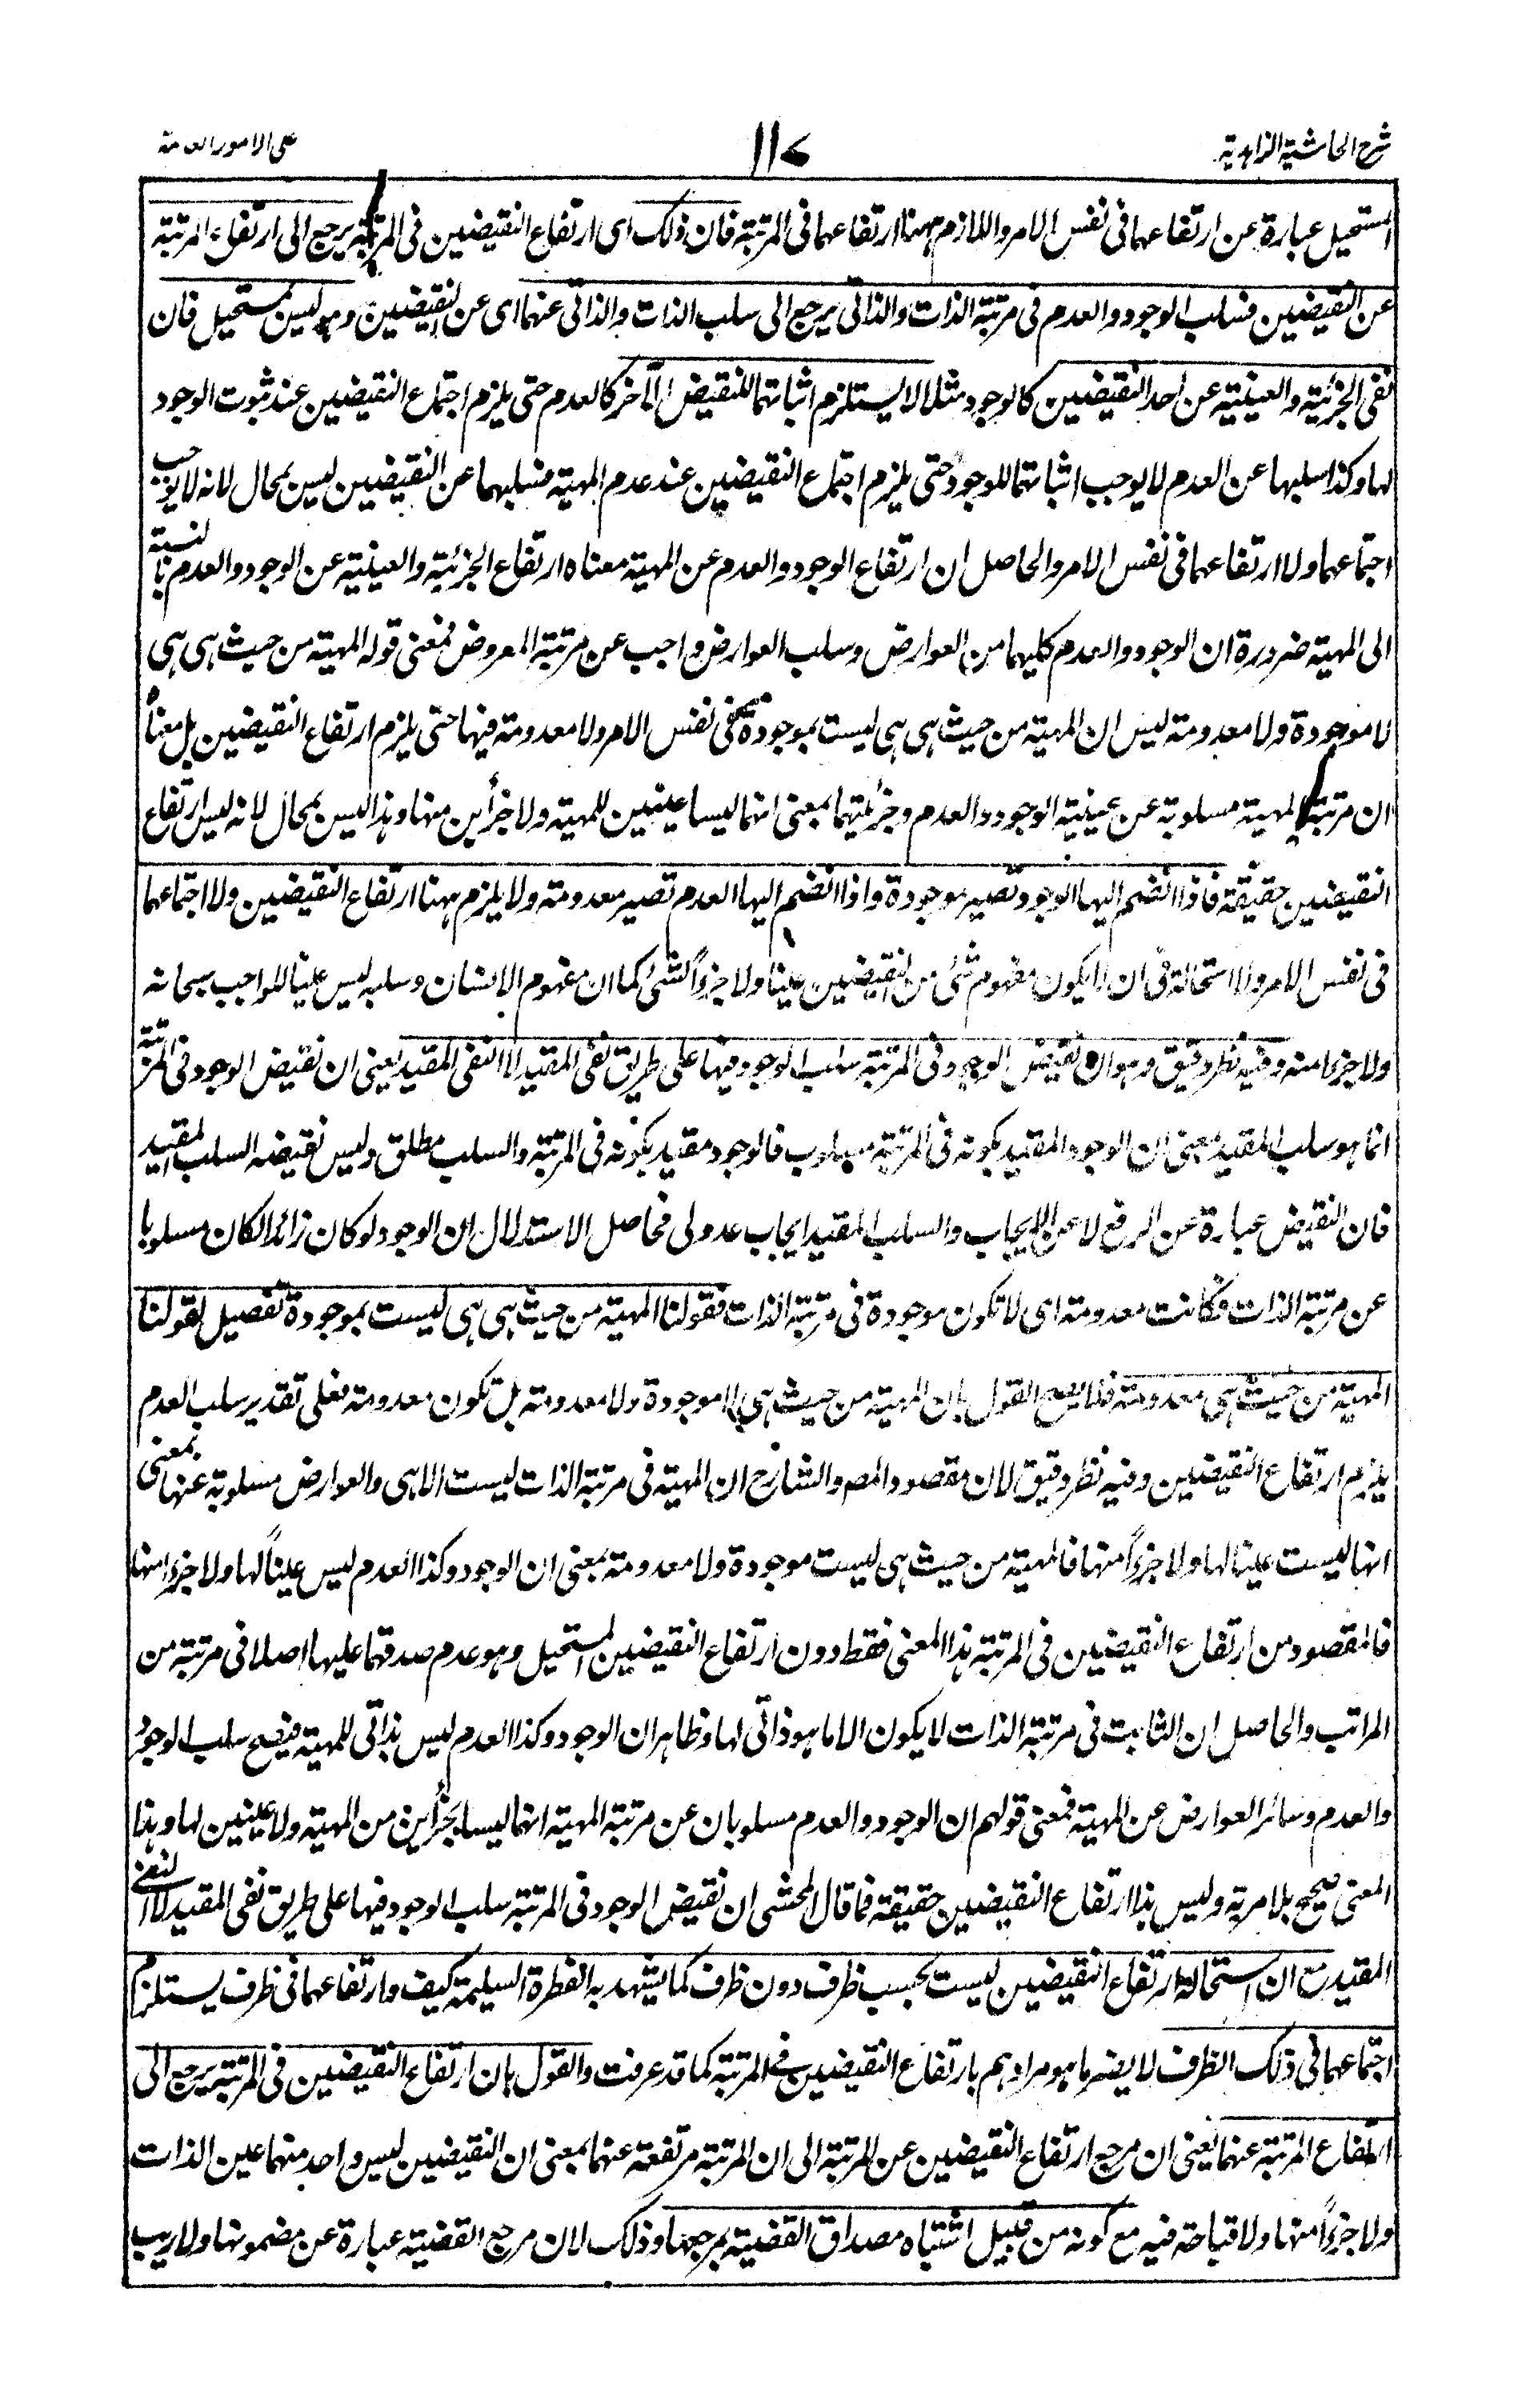 شرح الحاشية الزاهدية
١١٧
على الامور العامة
المستحيل عبارة عن ارتفاعهما فى نفس الامر واللازم ههنا ارتفاعهما فى المرتبة فان ذلك اى ارتفاع النقيضين فى المرتبة يرجع الى ارتفاع المرتبة
عن النقيضين فسلب الوجود والعدم فى مرتبة الذات والذاتى يرجع الى سلب الذات والذاتى عنهما اى عن النقيضين وهو ليس بمستحيل فان
نفى الجزئية والعينية عن احد النقيضين كالوجود مثلا لا يستلزم اثباتهما للنقيض الآخر كالعدم حتى يلزم اجتماع النقيضين عند ثبوت الوجود
لها وكذا سلبها عن العدم لا يوجب اثباتهما للوجود حتى يلزم اجتماع النقيضين عند عدم المهية فسلبهما عن النقيضين ليس بمحال لانه لا يوجب
اجتماعهما ولا ارتفاعهما فى نفس الامر والحاصل ان ارتفاع الوجود والعدم عن المهية معناه ارتفاع الجزئية والعينية عن الوجود والعدم بالنسبة
الى المهية ضرورة ان الوجود والعدم كليهما من العوارض وسلب العوارض واجب عن مرتبة المعروض فمعنى قوله المهية من حيث هى هى
لا موجودة ولا معدومة ليس ان المهية من حيث هى هى ليست بموجودة فى نفس الامر ولا معدومة فيها حتى يلزم ارتفاع النقيضين بل معناه
ان مرتبة المهية مسلوبة عن عينية الوجود والعدم وجزئيتهما بمعنى انهما ليسا عينين للمهية ولا جزأين منها وهذا ليس بمحال لانه ليس ارتفاع
النقيضين حقيقة فاذا انضم اليها الوجود تصير موجودة واذا انضم اليها العدم تصير معدومة ولا يلزم ههنا ارتفاع النقيضين ولا اجتماعهما
فى نفس الامر ولا استحالة فى ان لا يكون مفهوم شئ من النقيضين عينا ولا جزءاً لشئ كما ان مفهوم الانسان وسلبه ليس عينا للواجب سبحانه
ولا جزءا منه وفيه نظر دقيق وهو ان نقيض الوجود فى المرتبة سلب الوجود فيها على طريق نفى المقيد لا النفى المقيد يعنى ان نقيض الوجود فى المرتبة
انما هو سلب المقيد بمعنى ان الوجود المقيد بكونه فى المرتبة مسلوب فالوجود مقيد بكونه فى المرتبة والسلب مطلق وليس نقيضه السلب المقيد
فان النقيض عبارة عن الرفع لا عن الايجاب والسلب المقيد ايجاب عدولى فحاصل الاستدلال ان الوجود لو كان زائدا لكان مسلوبا
عن مرتبة الذات فكانت معدومة اى لا تكون موجودة فى مرتبة الذات فقولنا المهية من حيث هى هى ليست بموجودة تفصيل لقولنا
المهية من حيث هى معدومة فلا يصح القول بان المهية من حيث هى لا موجودة ولا معدومة بل تكون معدومة فعلى تقدير سلب العدم
يلزم ارتفاع النقيضين وفيه نظر دقيق لان مقصود المص والشارح ان المهية فى مرتبة الذات ليست الا هى والعوارض مسلوبة عنها بمعنى
انها ليست عينا لها ولا جزءاً منها فالمهية من حيث هى ليست موجودة ولا معدومة بمعنى ان الوجود وكذا العدم ليس عيناً لها ولا جزءا منها
فالمقصود من ارتفاع النقيضين فى المرتبة هذا المعنى فقط دون ارتفاع النقيضين المستحيل وهو عدم صدقهما عليها اصلا فى مرتبة من
المراتب والحاصل ان الثابت فى مرتبة الذات لا يكون الا ما هو ذاتى لها وظاهر ان الوجود وكذا العدم ليس بذاتى للمهية فيصح سلب الوجود
والعدم وسائر العوارض عن المهية فمعنى قولهم ان الوجود والعدم مسلوبان عن مرتبة المهية انهما ليسا بجزأين من المهية ولا عينين لها وهذا
المعنى صحيح بلا مرية وليس هذا ارتفاع النقيضين حقيقة فما قال المحشى ان نقيض الوجود فى المرتبة سلب الوجود فيها على طريق نفى المقيد لا النفى
المقيد مع ان استحالة ارتفاع النقيضين ليست بحسب ظرف دون ظرف كما يشهد به الفطرة السليمة كيف وارتفاعهما فى ظرف يستلزم
اجتماعهما فى ذلك الظرف لا يضر ما هو مرادهم بارتفاع النقيضين فى المرتبة كما قد عرفت والقول بان ارتفاع النقيضين فى المرتبة يرجع الى
ارتفاع المرتبة عنهما يعنى ان مرجع ارتفاع النقيضين عن المرتبة الى ان المرتبة مرتفعة عنهما بمعنى ان النقيضين ليس واحد منهما عين الذات
ولا جزءاً منها ولا قباحة فيه مع كونه من قبيل اشتباه مصداق القضية بمرجعها وذلك لان مرجع القضية عبارة عن مضمونها ولا ريب